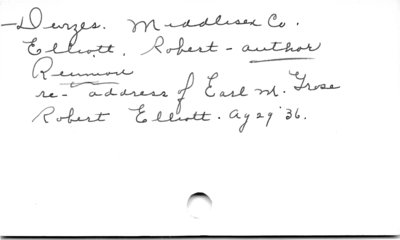 -Devizes. Middlesex Co.
Elliott. Robert - author
Reunion
re- address of Earl M. Grose
Robert Elliott. Ag 29 '36.